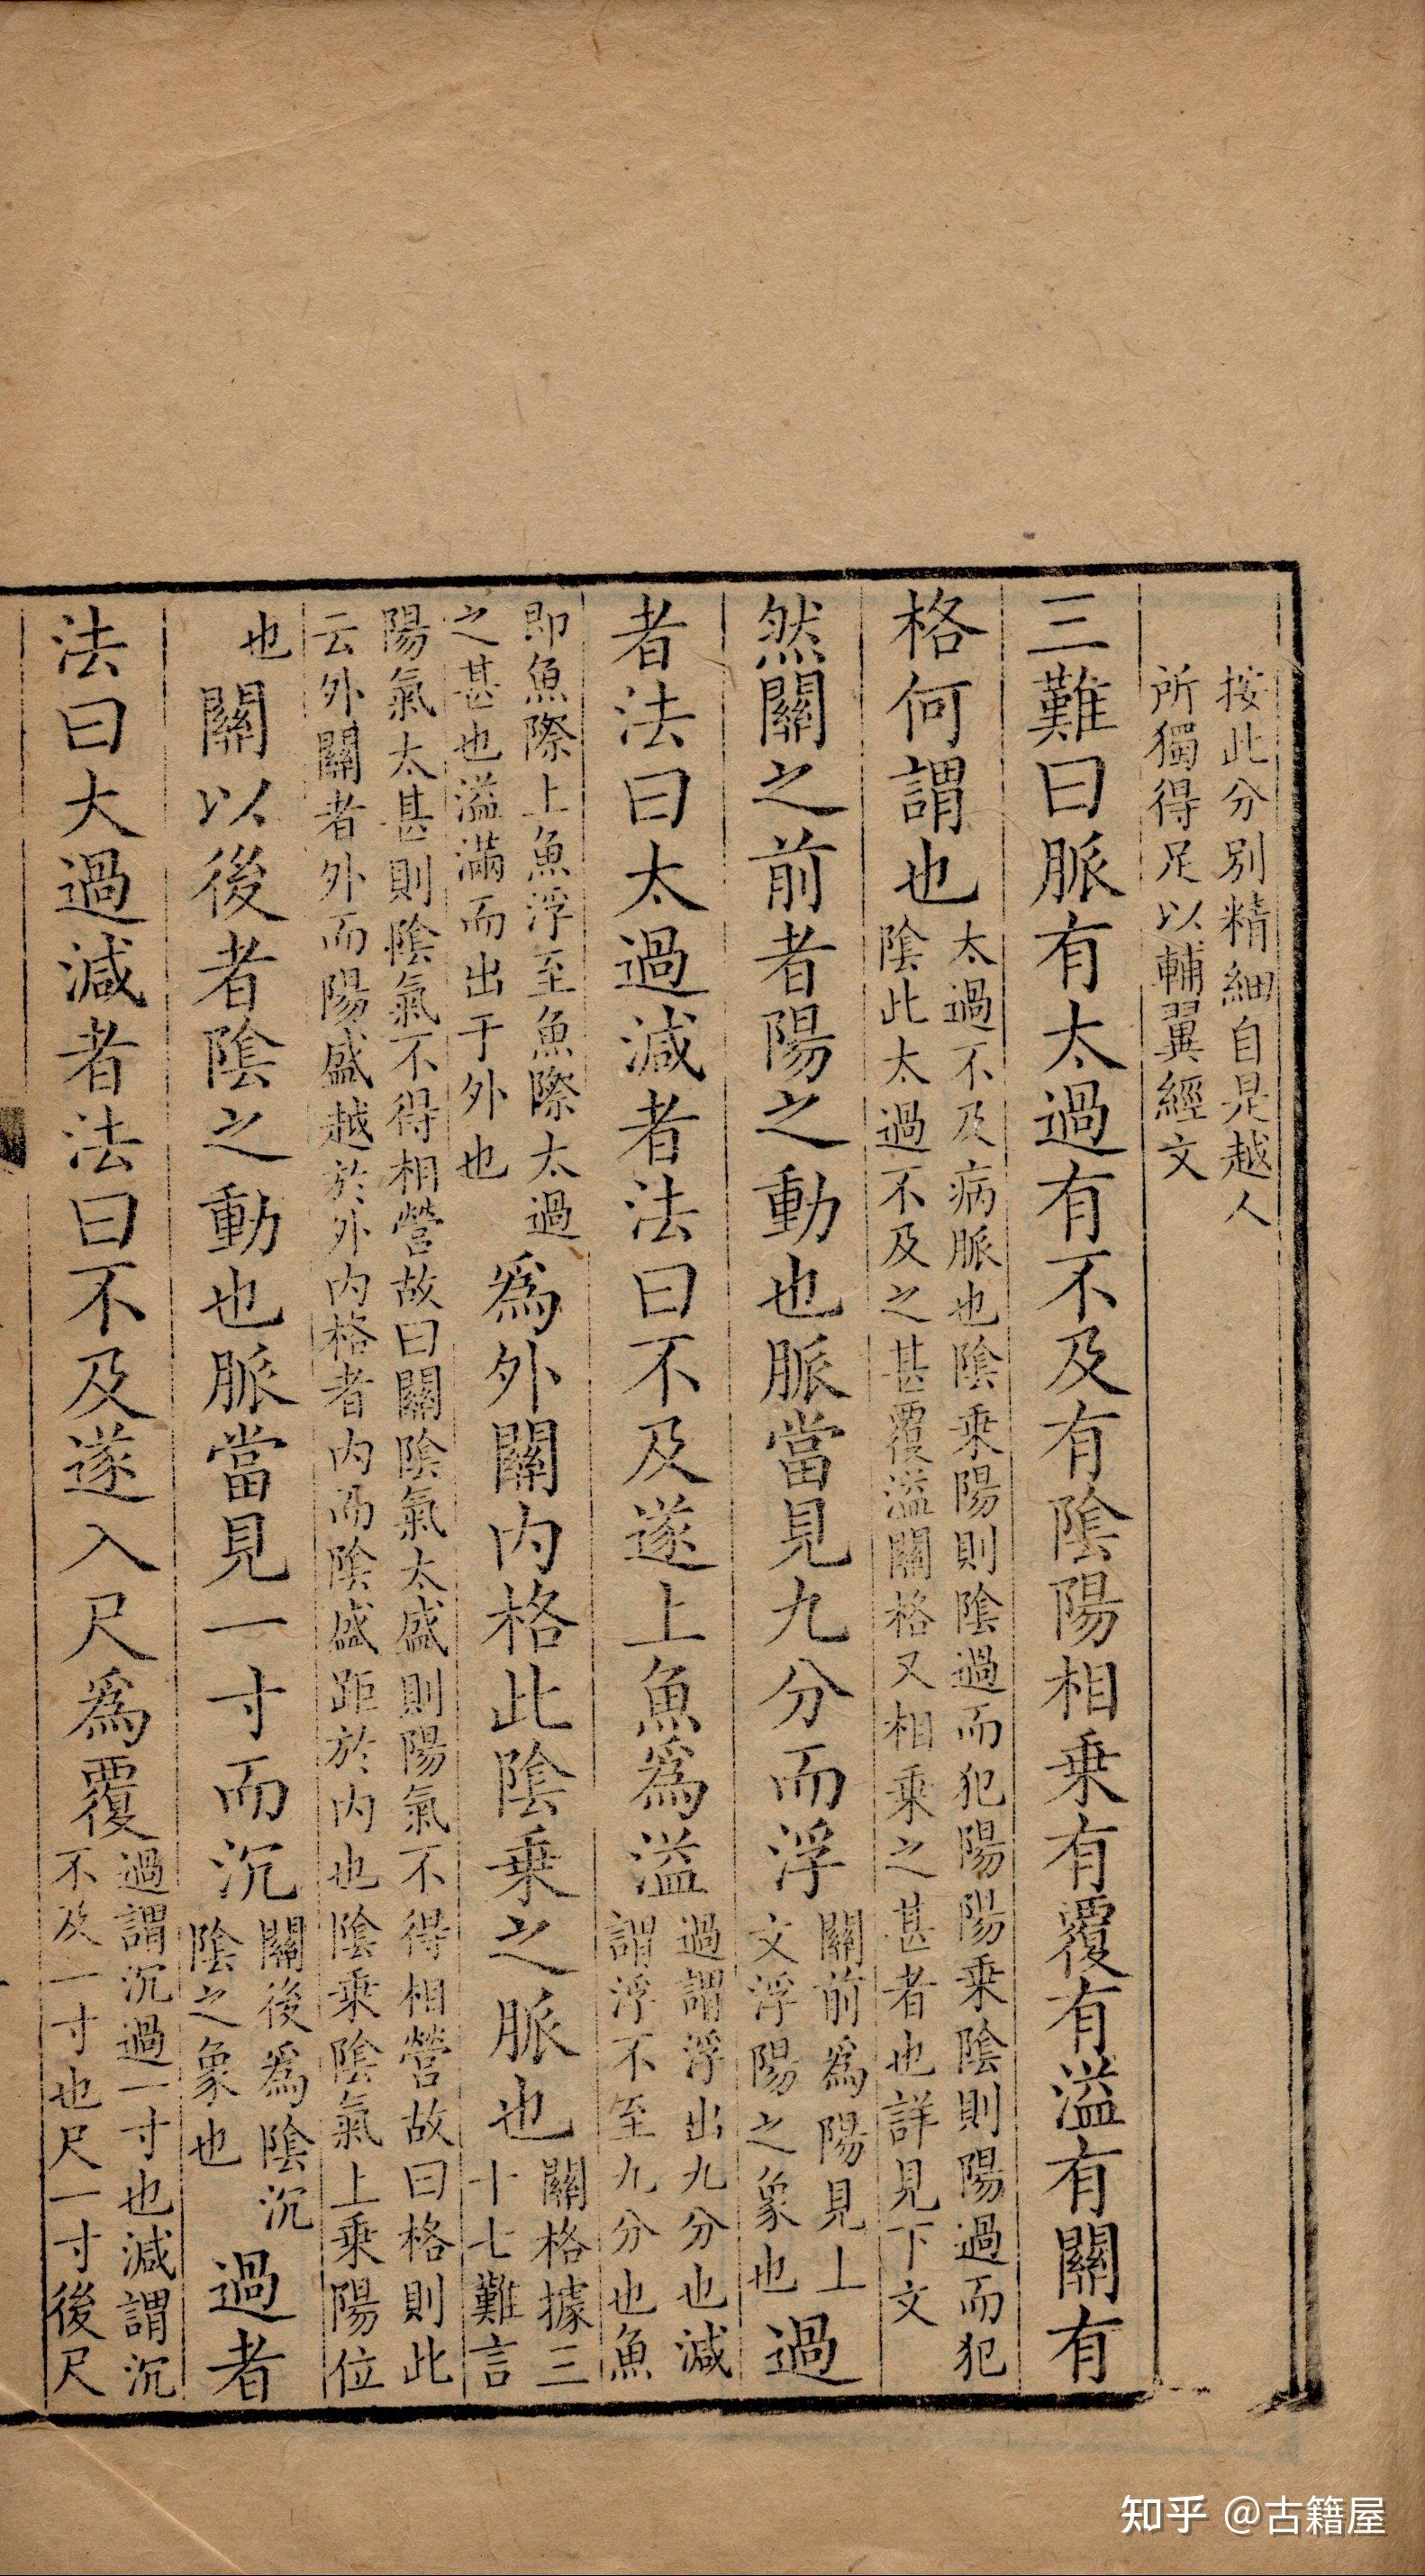 按此分別精細自是越人
所獨得足以輔翼經文
三難曰脈有太過有不及有陰陽相乘有覆有溢有關有
格何謂也
太過不及病脈也陰乘陽則陰過而犯陽陽乘陰則陽過而犯
陰此太過不及之甚覆溢關格又相乘之甚者也詳見下文
然關之前者陽之動也脈當見九分而浮
關前為陽見上
文浮陽之象也
過
者法曰太過減者法曰不及遂上魚為溢
過謂浮出九分也減
謂浮不至九分也魚
即魚際上魚浮至魚際太過
之甚也溢滿而出于外也
為外關內格此陰乘之脈也
關格據三
十七難言
陽氣太甚則陰氣不得相營故曰關陰氣太盛則陽氣不得相營故曰格則此
云外關者外而陽盛越於外內格者內而陰盛距於內也陰乘陰氣上乘陽位
也
關以後者陰之動也脈當見一寸而沉
關後為陰沉
陰之象也
過者
法曰大過減者法曰不及遂入尺為覆
過謂沉過一寸也減謂沉
不及一寸也尺一寸後尺
知乎 @古籍屋